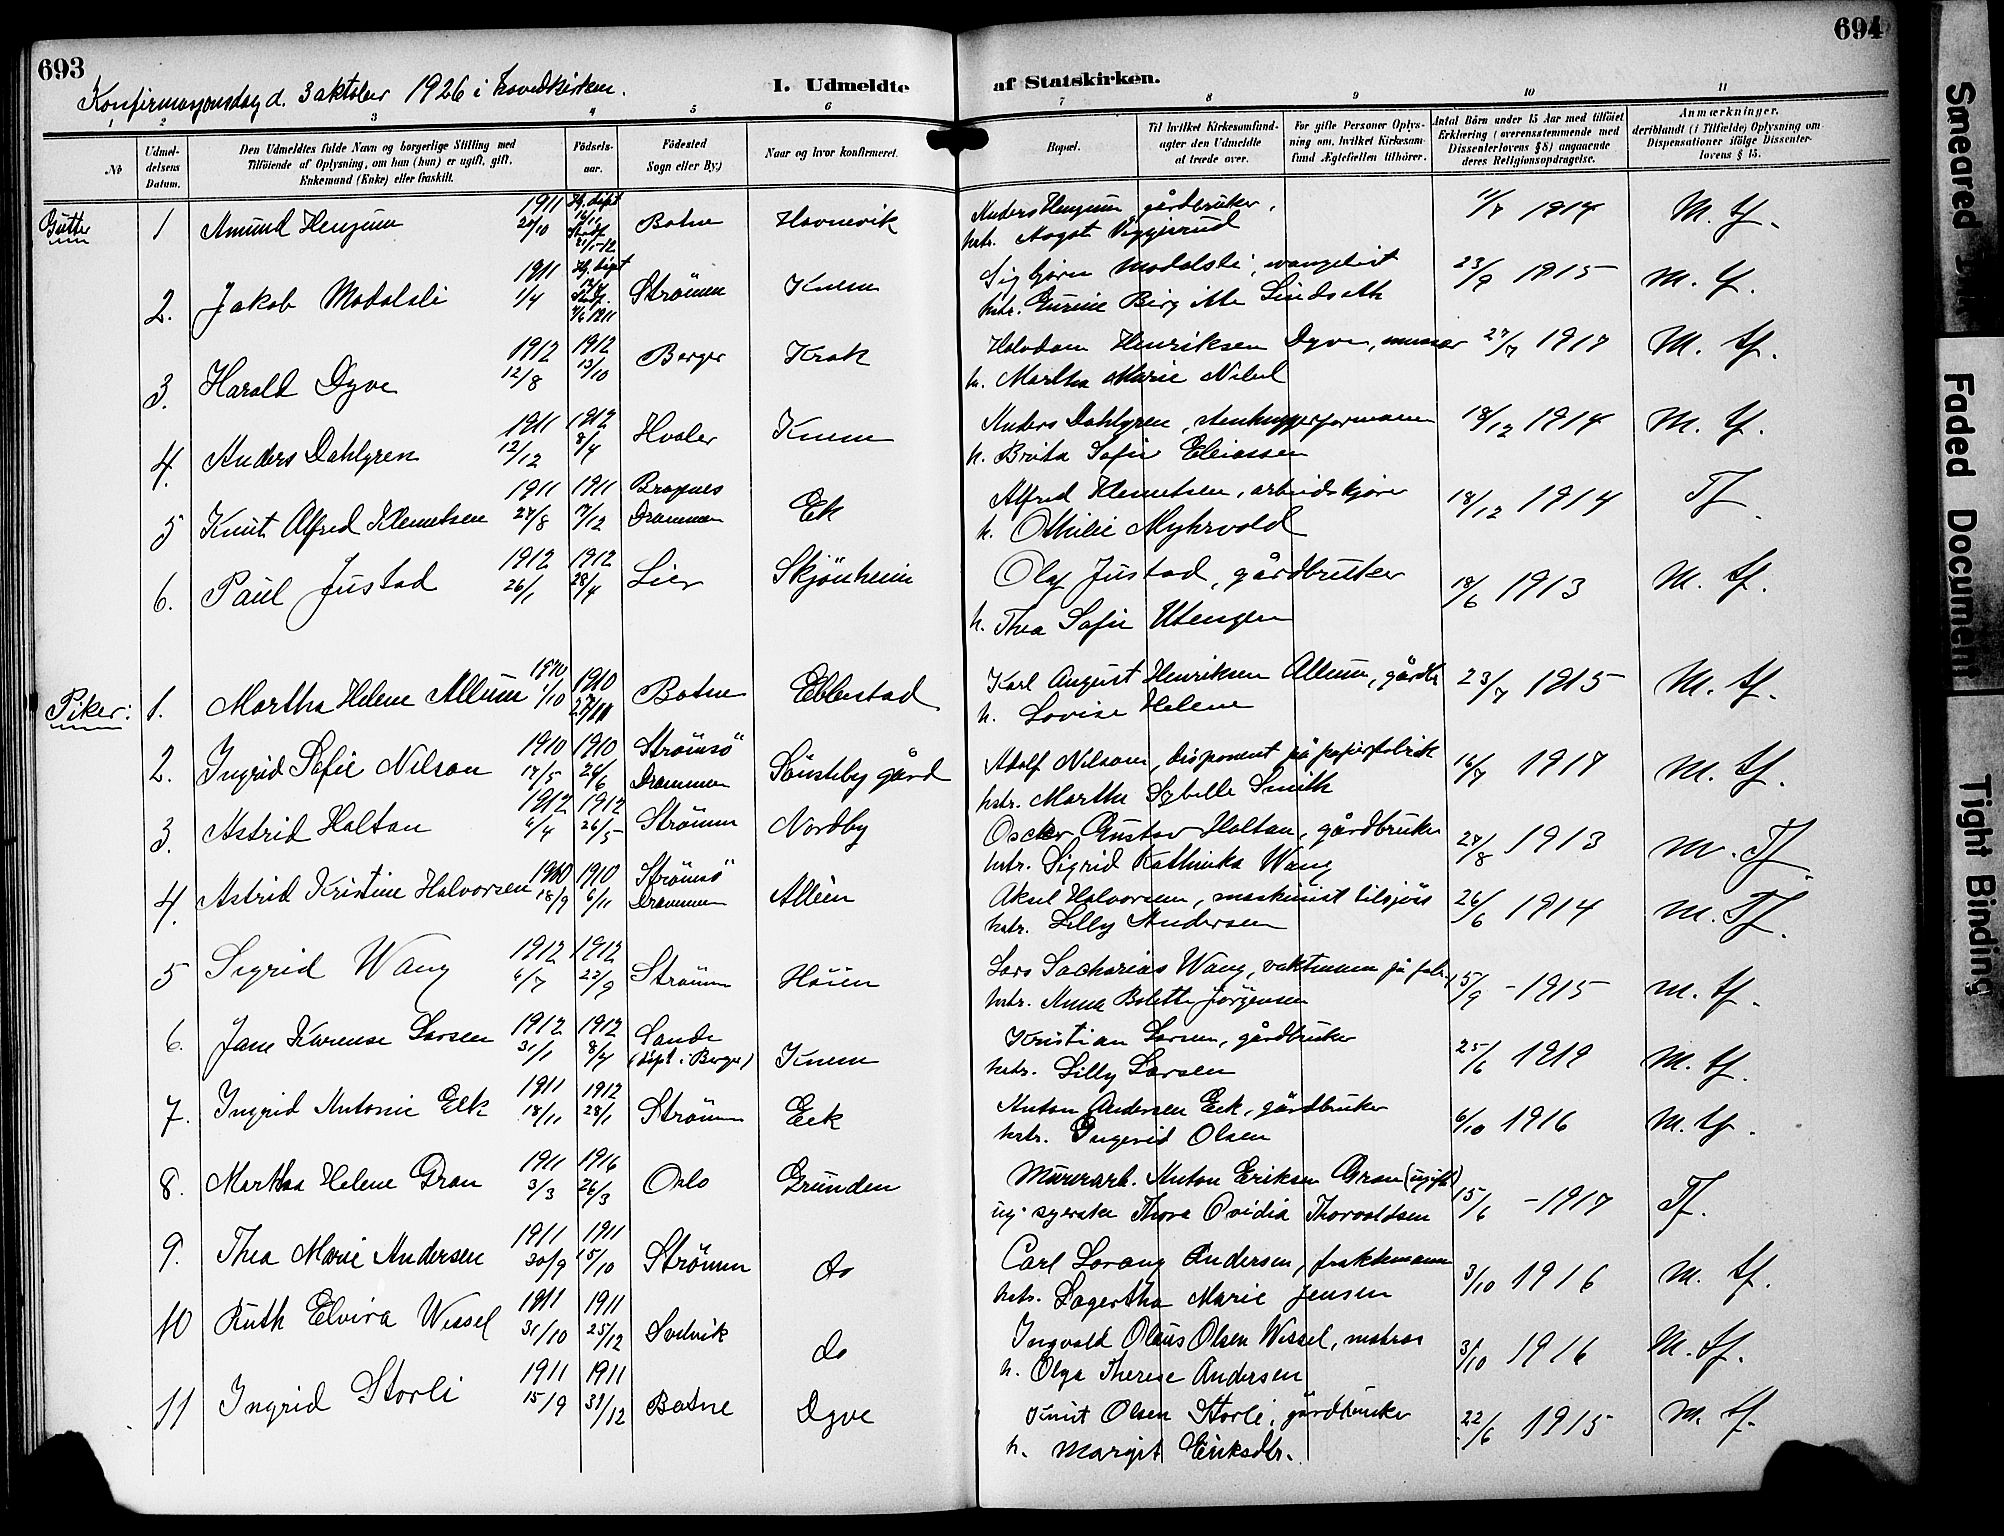 693
694
Konfirmasjonsdag d. 3 oktober 1926 i hovedkirken.
I. Udmeldte af Statskirken.
1 2 3 4 5 6 7 8 9 10 11
No
Udmeldelsens Datum.
Den Udmeldtes fulde Navn og borgerlige Stilling med Tilføiende af Oplysning, om han (hun) er ugift, gift, Enkemand (Enke) eller fraskilt.
Fødselsaar.
Fødested Sogn eller By.)
Naar og hvor konfirmeret.
Bopæl.
Til hvilket Kirkesamfund agter den Udmeldte at træde over.
For gifte Personer Oplysning om, hvilket Kirkesamfund Ægtefællen tilhører.
Antal Børn under 15 Aar med tilføiet Erklæring (overensstemmende med Dissenterlovens § 8) angaaende deres Religionsopdragelse.
Anmærkninger, deriblandt (i Tilfælde) Oplysning om Dispensationer ifølge Dissenterlovens § 15.
Gutter
1 Amund Hengum 1911 20/10 Botne Havnevik Anders Hengum gårdbruker, hstr. 1914
2. Jakob Modalsli 1911 1/4 Hj. døpt Strömm Knem Sigbjørn Modalsli, evangelist hstr. Gurine Birgitte Lindseth 23/9 1915
3. Harald Dyve 1912 12/8 1912 13/10 Berger Krok Halvdan Henriksen Dyve, murer h. Martha Marie Nibel 27/7 1917
4. Anders Dahlgren 1911 12/12 1912 8/4 Hvaler Knem Anders Dahlgren, stenhuggerformann h. Brita Sofie Eliassen 18/12 1914
5 Knut Alfred Klemetsen 1911 27/8 1911 17/12 Bragnes Drammen Ek Alfred Klemetsen, arbeidskjörer h. Othilie Myhrvold 18/12 1914
6. Paul Justad 1912 26/1 1912 28/4 Lier Skjönheim Olaf Justad, gårdbruker h. Thea Sofie Utengen 18/6 1913
Piker:
1. Martha Helene Allum 1910 1/10 1910 27/11 Botne Ebbestad Karl August Henriksen Allum, gårdb. h. Lovise Helene 23/7 1915
2. Ingrid Sofie Nilson 1910 17/5 1910 26/6 Strömsö Drammen Sönsteby gård Adolf Nilson, disponent på papirfabrik hstr. Martha Sybelle Smith 16/7 1917
3. Astrid Holtan 1912 6/4 1912 26/5 Strömm Nordby Oscker Gustav Holtan, gårdbruker hstr. Sigrid Kathinka Wang 27/8 1913
4. Astrid Kristine Halvorsen 1910 18/9 1910 6/11 Strömsö Drammen Allum Aksel Halvorsen, maskinist tilsjös hstr. Lilly Andersen 26/6 1914
5 Sigrid Wang 1912 6/7 1912 22/9 Strömm Höien Lars Sacharias Wang, vaktmann på fabr. hstr. Anna Bolette Jörgensen 15/9 - 1915
6. Jane Karense Larsen 1912 31/1 1912 8/4 Sande (döpt i Berger) Knem Kristian Larsen, gårdbruker hstr. Lilly Larsen 25/6 1919
7. Ingrid Antonie Eek 1911 18/11 1912 28/1 Strömm Eek Anton Andersen Eek, gårdbruker hstr. Ingerid Olsen 6/10 1916
8. Martha Helene Gran 1911 3/3 1916 26/3 Oslo Grunden Murerarb. Anton Eriksen Gran (ugift) ug. syerske Thora Ovidia Thorvaldsen 15/6 - 1917
9. Thea Marie Andersen 1911 30/9 1911 15/10 Strömm do Carl Lorang Andersen, fraktemann hstr. Lagertha Marie Jensen 3/10 1916
10 Ruth Elvira Wessel 1911 31/10 1911 25/12 Svelvik do Ingvald Olaus Olsen Wessel, matros h. Olga Therese Andersen 3/10 1916
11 Ingrid Storli 1911 15/9 1911 31/12 Botne Dyve Knut Olsen Storli, gårdbruker h. Margit Eriksdtr. 22/6 1915
Smeared
Faded Document
Tight Binding